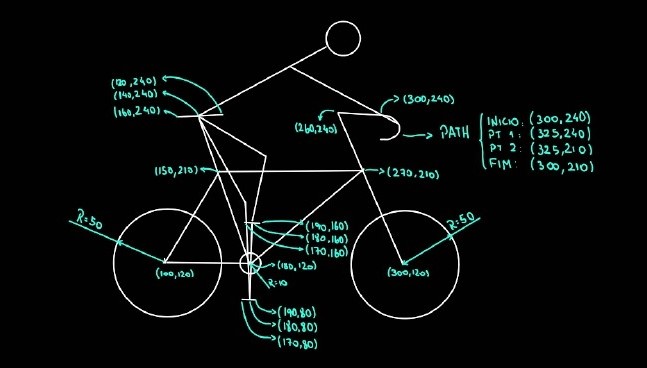 (120,240)
(140,240)
(160,240)
(300,240)
(260,240)
PATH
INICIO: (300,240)
PT 1: (325,240)
PT 2: (325,210)
FIM: (300,210)
(150,210)
(270,210)
R=50
(190,160)
(180,160)
(170,160)
R=50
(100,120)
(180,120)
(300,120)
R=10
(190,80)
(180,80)
(170,80)